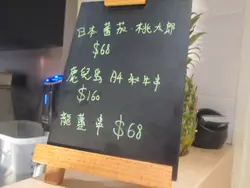 日本蕃茄·桃太郎
$68
鹿兒島 A4 和牛串
$160
龍蓮串 $68